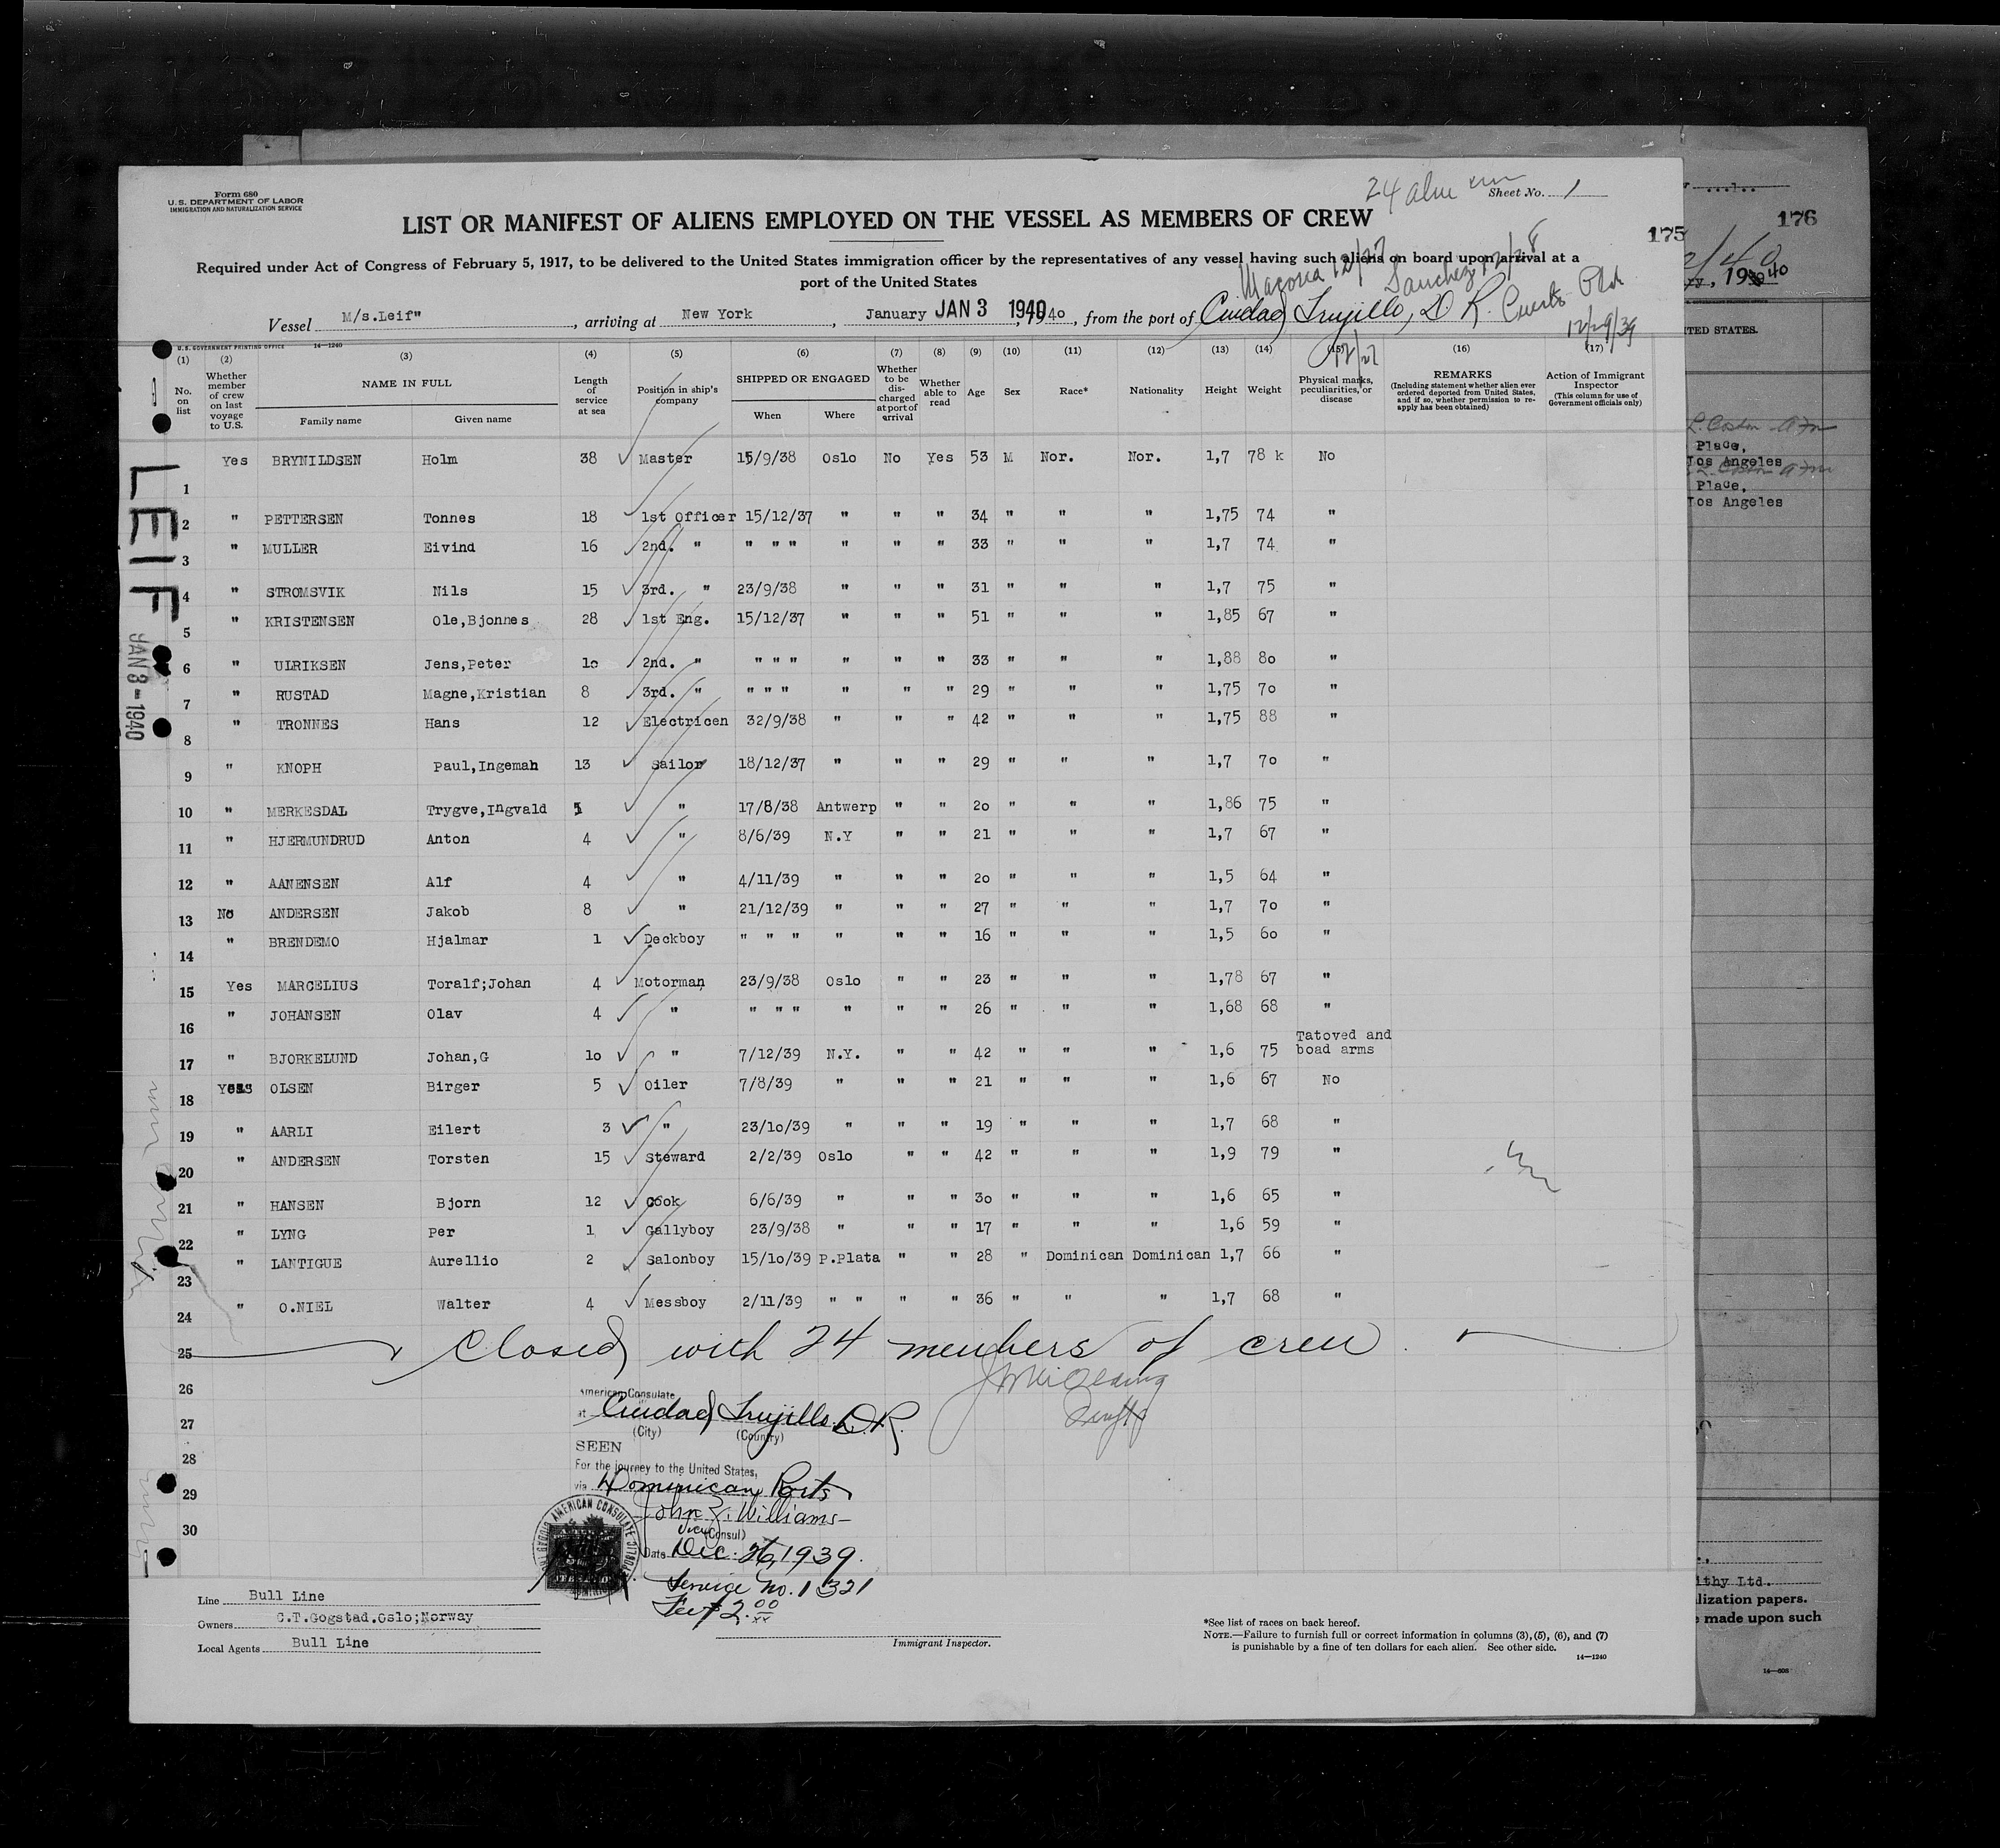 Form 680
U. S. DEPARTMENT OF LABOR
IMMIGRATION AND NATURALIZATION SERVICE
24 alien
Sheet No. 1
LIST OR MANIFEST OF ALIENS EMPLOYED ON THE VESSEL AS MEMBERS OF CREW
175
176
Required under Act of Congress of February 5, 1917, to be delivered to the United States immigration officer by the representatives of any vessel having such aliens on board upon arrival at a
port of the United States
Macoris 12/27 Sanchez 12/28
Vessel M/s.Leif", arriving at New York, January JAN 3 1940, 1940, from the port of Ciudad Trujillo, D R. Puerto Plata
12/29/39
12/27
U. S. GOVERNMENT PRINTING OFFICE 14—1240
(1) (2) (3) (4) (5) (6) (7) (8) (9) (10) (11) (12) (13) (14) (15) (16) (17)
No. on list Whether member of crew on last voyage to U.S. NAME IN FULL Family name Given name Length of service at sea Position in ship's company SHIPPED OR ENGAGED When Where Whether to be discharged at port of arrival Whether able to read Age Sex Race* Nationality Height Weight Physical marks, peculiarities, or disease REMARKS (Including statement whether alien ever ordered deported from United States, and if so, whether permission to reapply has been obtained) Action of Immigrant Inspector (This column for use of Government officials only)
1 Yes BRYNILDSEN Holm 38 Master 15/9/38 Oslo No Yes 53 M Nor. Nor. 1,7 78 k No
2 " PETTERSEN Tonnes 18 1st Officer 15/12/37 " " " 34 " " " 1,75 74 "
3 " MULLER Eivind 16 2nd. " " " " " " " 33 " " " 1,7 74 "
4 " STROMSVIK Nils 15 3rd. " 23/9/38 " " " 31 " " " 1,7 75 "
5 " KRISTENSEN Ole,Bjonnes 28 1st Eng. 15/12/37 " " " 51 " " " 1,85 67 "
6 " ULRIKSEN Jens,Peter 1o 2nd. " " " " " " " 33 " " " 1,88 8o "
7 " RUSTAD Magne,Kristian 8 3rd. " " " " " " " 29 " " " 1,75 7o "
8 " TRONNES Hans 12 Electricen 32/9/38 " " " 42 " " " 1,75 88 "
9 " KNOPH Paul,Ingeman 13 Sailor 18/12/37 " " " 29 " " " 1,7 7o "
10 " MERKESDAL Trygve,Ingvald " 17/8/38 Antwerp " " 2o " " " 1,86 75 "
11 " HJERMUNDRUD Anton 4 " 8/6/39 N.Y " " 21 " " " 1,7 67 "
12 " AANENSEN Alf 4 " 4/11/39 " " " 2o " " " 1,5 64 "
13 No ANDERSEN Jakob 8 " 21/12/39 " " " 27 " " " 1,7 7o "
14 " BRENDEMO Hjalmar 1 Deckboy " " " " " " 16 " " " 1,5 6o "
15 Yes MARCELIUS Toralf;Johan 4 Motorman 23/9/38 Oslo " " 23 " " " 1,78 67 "
16 " JOHANSEN Olav 4 " " " " " " " 26 " " " 1,68 68 "
17 " BJORKELUND Johan,G 1o " 7/12/39 N.Y. " " 42 " " " 1,6 75 Tatoved and boad arms
18 Yes OLSEN Birger 5 Oiler 7/8/39 " " " 21 " " " 1,6 67 No
19 " AARLI Eilert 3 " 23/1o/39 " " " 19 " " " 1,7 68 "
20 " ANDERSEN Torsten 15 Steward 2/2/39 Oslo " " 42 " " " 1,9 79 "
21 " HANSEN Bjorn 12 Cook 6/6/39 " " " 3o " " " 1,6 65 "
22 " LYNG Per 1 Gallyboy 23/9/38 " " " 17 " " " 1,6 59 "
23 " LANTIGUE Aurellio 2 Salonboy 15/1o/39 P.Plata " " 28 " Dominican Dominican 1,7 66 "
24 " O.NIEL Walter 4 Messboy 2/11/39 " " " " 36 " " " 1,7 68 "
25 Closed with 24 members of crew
26
27
28
29
30
LEIF
JAN 8-1940
American Consulate
at Ciudad Trujillo D.R.
(City) (Country)
SEEN
For the journey to the United States,
via Dominican Ports
John Williams
Vice (Consul)
Date Dec. 26, 1939.
Service No. 1321
Fee $2.00
AMERICAN CONSULATE
Line Bull Line
Owners C.T.Gogstad.Oslo;Norway
Local Agents Bull Line
Immigrant Inspector.
*See list of races on back hereof.
NOTE.—Failure to furnish full or correct information in columns (3), (5), (6), and (7)
is punishable by a fine of ten dollars for each alien. See other side.
14—1240
, 1940
ITED STATES.
Place,
Los Angeles
Place,
Los Angeles
ithy Ltd.
lization papers.
made upon such
14—608